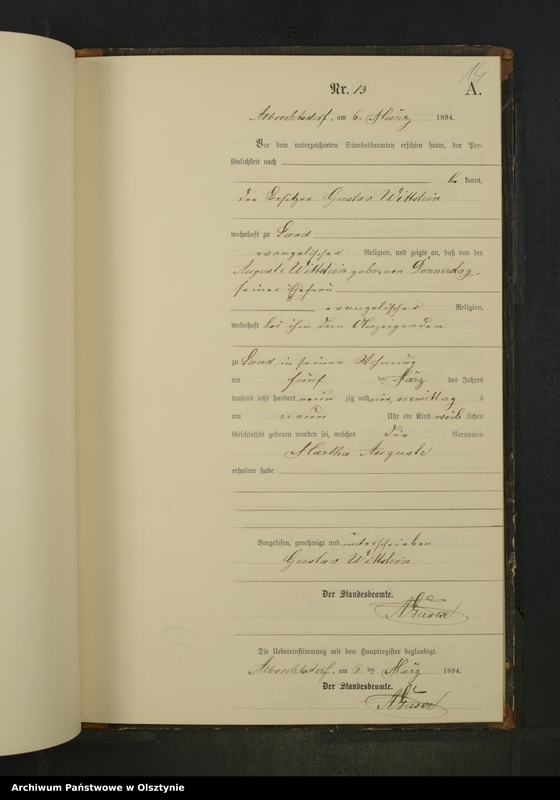 14
Nr. 13 A.
Albrechtsdorf, am 6. März 1894.
Vor dem unterzeichneten Standesbeamten erschien heute, der Per-
sönlichkeit nach
be kannt,
der Besitzer Gustav Wittstein
wohnhaft zu Sand
evangelischer Religion, und zeigte an, daß von der
Auguste Wittstein geborenen Donnerstag,
seiner Ehefrau
evangelischer Religion,
wohnhaft bei ihm dem Anzeigenden
zu Sand in seiner Wohnung
am fünf ten März des Jahres
tausend acht hundert neun zig und vier, vormittag s
um neun Uhr ein Kind weib lichen
Geschlechts geboren worden sei, welches die Vornamen
Martha Auguste
erhalten habe
Vorgelesen, genehmigt und unterschrieben
Gustav Wittstein
Der Standesbeamte.
Die Uebereinstimmung mit dem Hauptregister beglaubigt.
Albrechtsdorf, am 6 ten März 1894.
Der Standesbeamte.
Archiwum Państwowe w Olsztynie